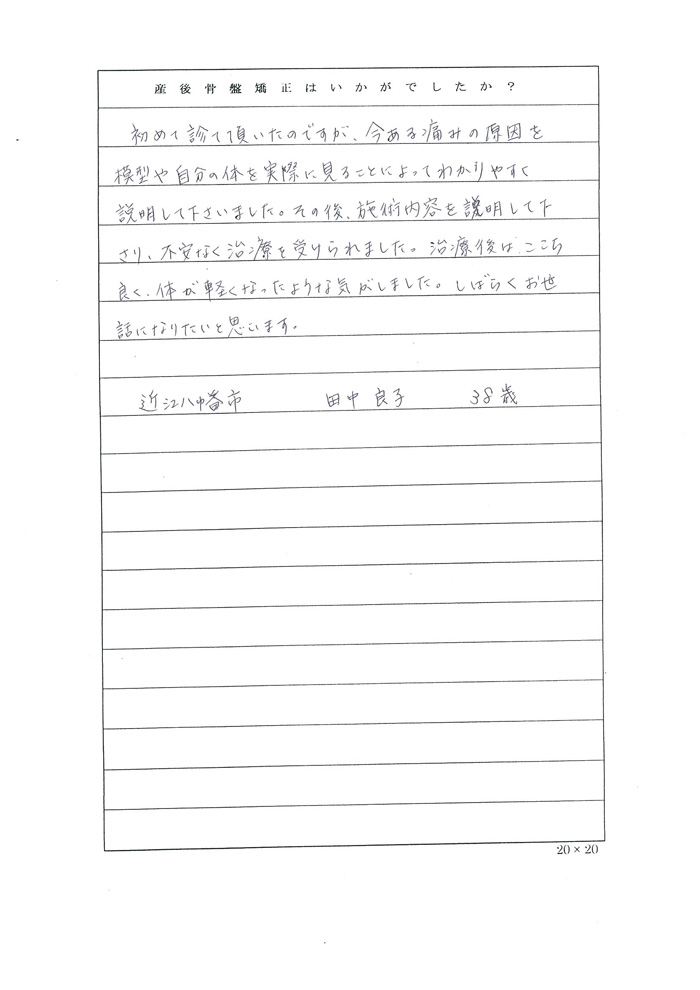 産後骨盤矯正はいかがでしたか?
初めて診て頂いたのですが、今ある痛みの原因を
模型や自分の体を実際に見ることによってわかりやすく
説明して下さいました。その後、施術内容を説明して下
さり、不安なく治療を受けられました。治療後は、ここち
良く、体が軽くなったような気がしました。しばらくお世
話になりたいと思います。
近江八幡市 田中良子 38歳
20×20